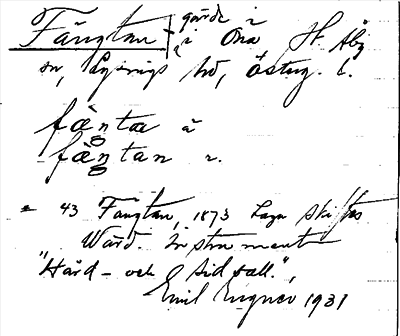 Fångtan gärde
i Öna St. Åby
sn, Lysings hd, Östug. l.
fånta
fångtan
= 43 Fångtan, 1873 Laga skiftes
Värd. Instrument
"Hård- och sidvall".
Emil Eugnér 1931